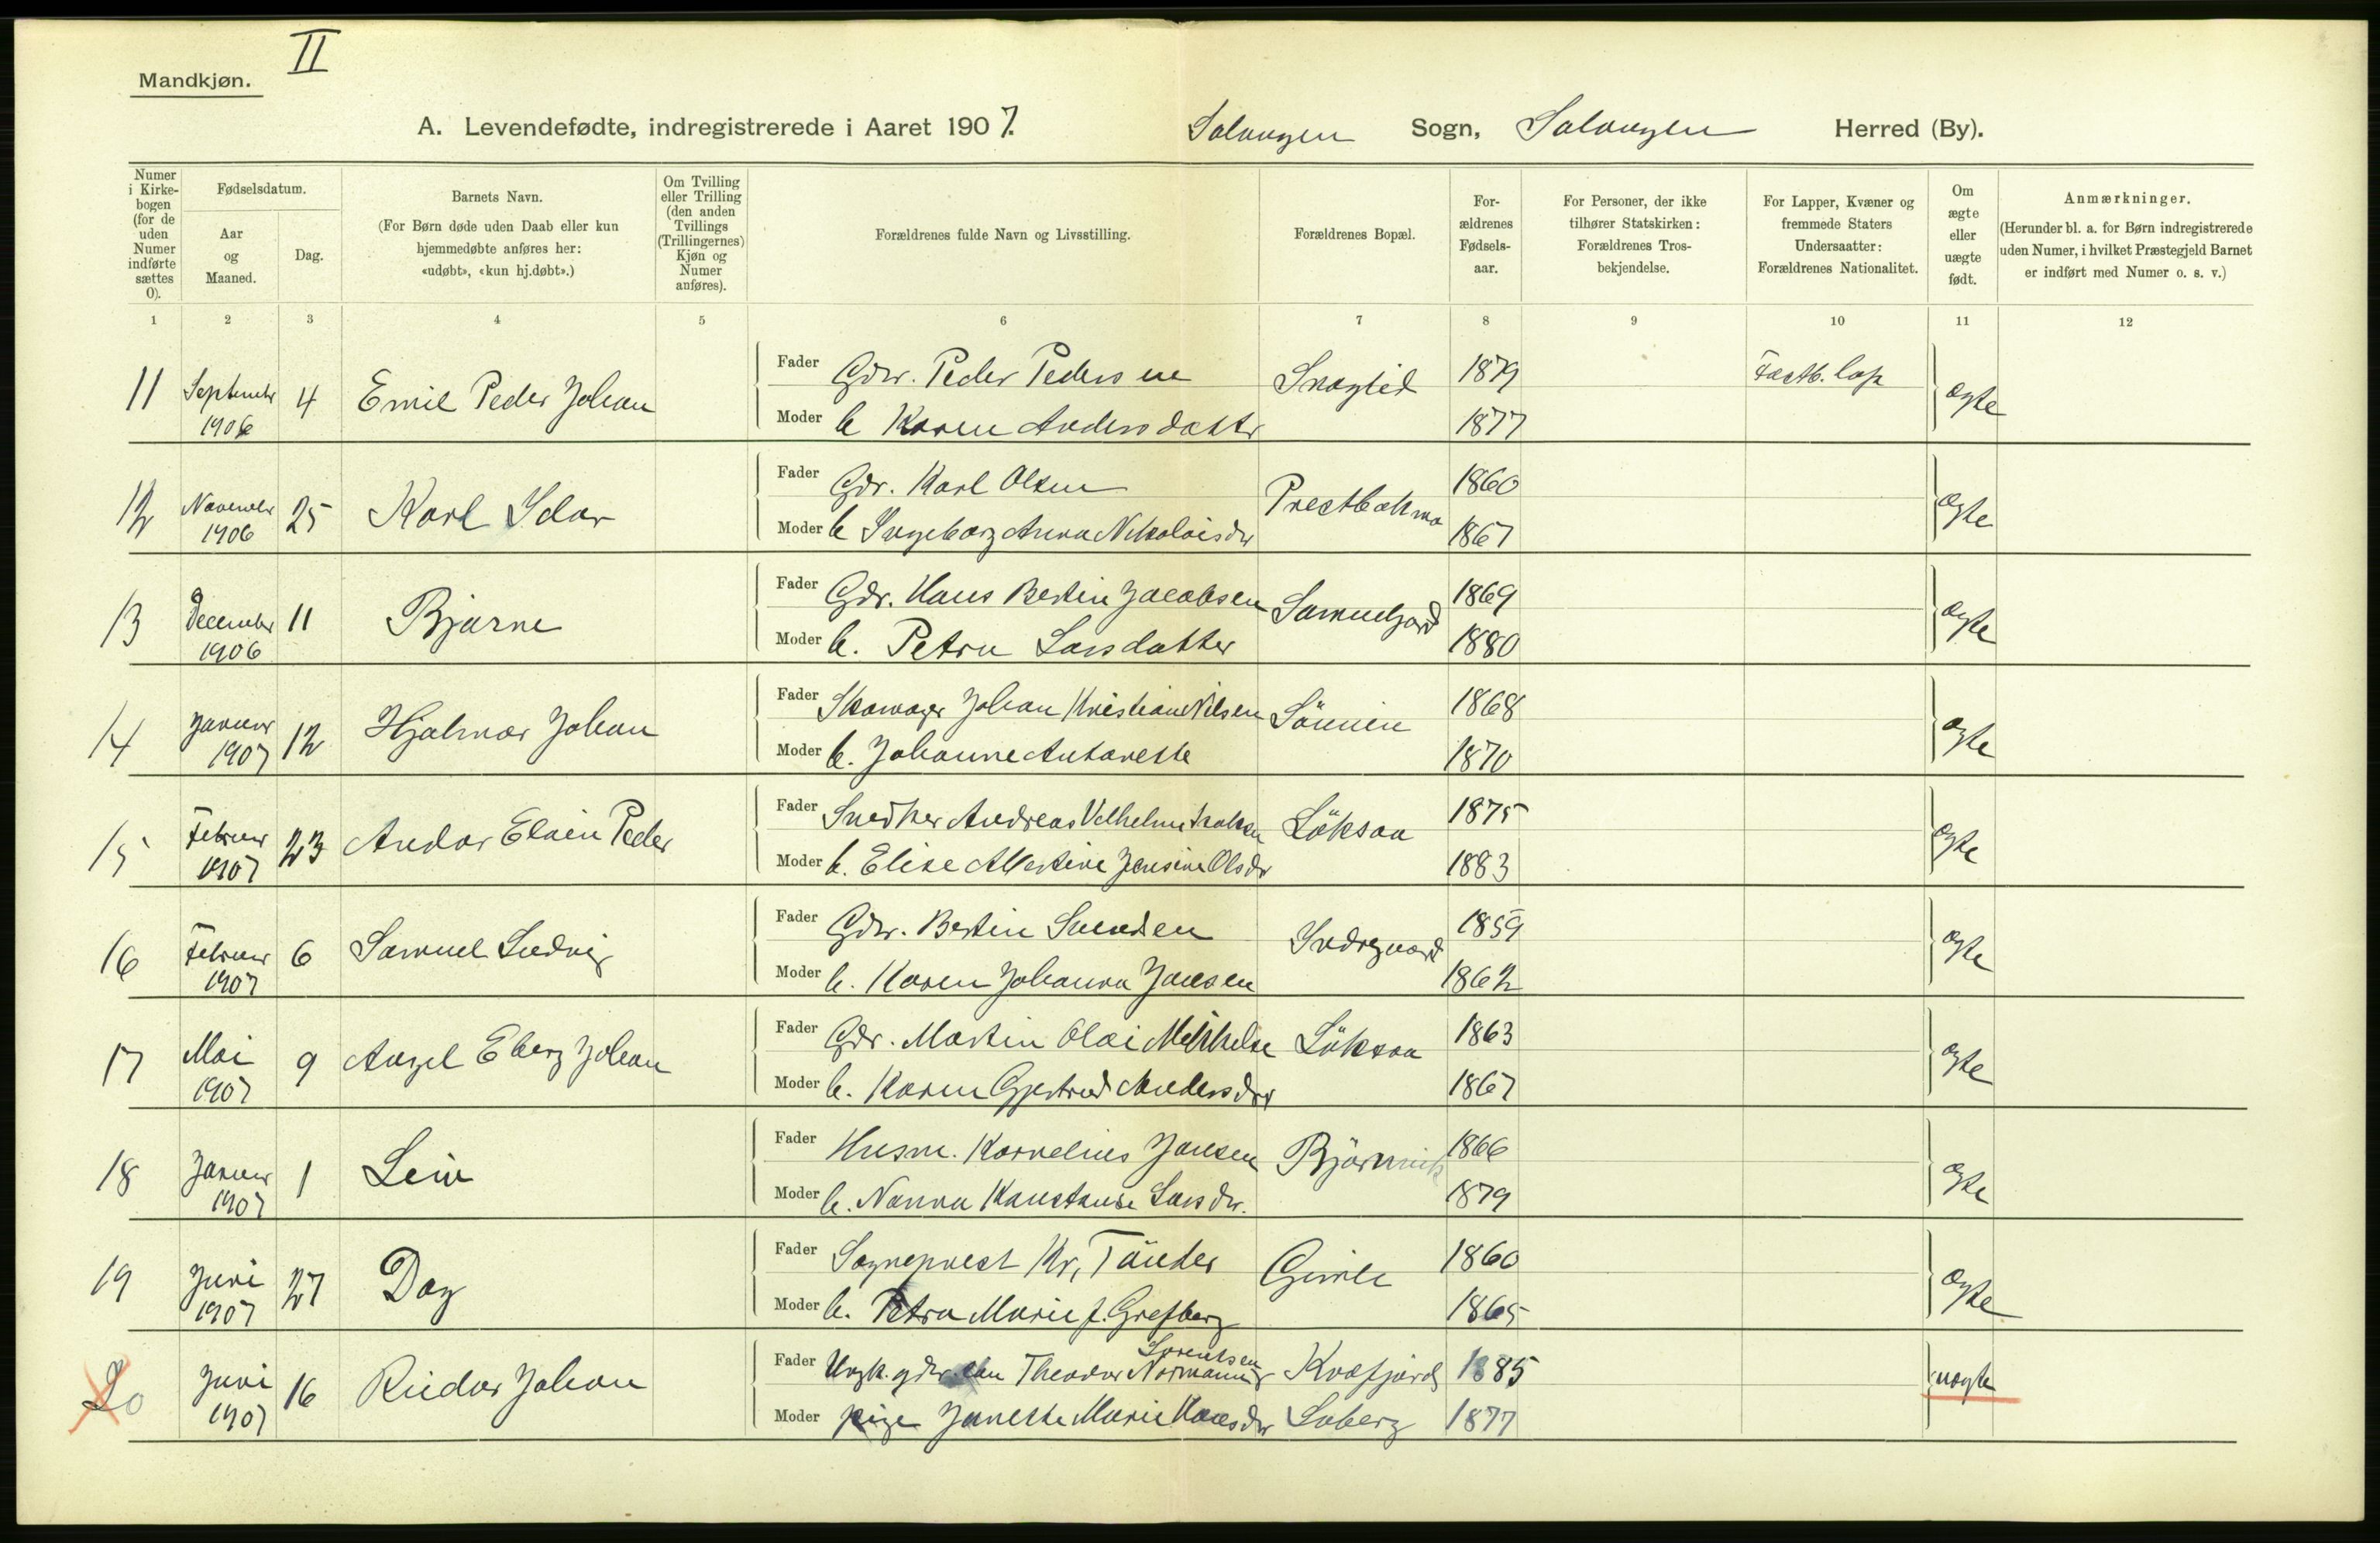 II
Mandkjøn.
A. Levendefødte, indregistrerede i Aaret 1907. Salangen Sogn, Salangen Herred (By).
Numer i Kirke-bogen (for de uden Numer indførte sættes 0).
Fødselsdatum.
Aar og Maaned.
Dag.
Barnets Navn.
(For Børn døde uden Daab eller kun hjemmedøbte anføres her: «udøbt», «kun hj.døbt».)
Om Tvilling eller Trilling (den anden Tvillings (Trillingernes) Kjøn og Numer anføres).
Forældrenes fulde Navn og Livsstilling.
Forældrenes Bopæl.
For-ældrenes Fødsels-aar.
For Personer, der ikke tilhører Statskirken: Forældrenes Tros-bekjendelse.
For Lapper, Kvæner og fremmede Staters Undersaatter: Forældrenes Nationalitet.
Om ægte eller uægte født.
Anmærkninger.
(Herunder bl. a. for Børn indregistrerede uden Numer, i hvilket Præstegjeld Barnet er indført med Numer o. s. v.)
1 2 3 4 5 6 7 8 9 10 11 12
11 September 1906 4 Emil Peder Johan
Fader Gdr. Peder Pedersen 1879 Fastb. lap
Moder h Karen Andersdatter 1877 ægte
12 November 1906 25 Karl Idar
Fader Gdr. Karl Olsen Prestbakmo 1860
Moder h Ingeborg Anna Nikolaisdr 1867 ægte
13 December 1906 11 Bjarne
Fader Gdr. Hans Bertin Jacobsen Samuelgard 1869
Moder h. Petra Larsdatter 1880 ægte
14 Januar 1907 12 Hjalmar Johan
Fader Johan Kristian Nilsen 1868
Moder h. Johanne Antonette 1870 ægte
15 Februar 1907 23 Andor Peder
Fader Snedker Andreas Vilhelm Löksaa 1875
Moder h. Elise Albertine Jensine Olsdr 1883 ægte
16 Februar 1907 6 Samuel Ludvig
Fader Gdr. Bertin Svendsen Indregaard 1859
Moder h. Karen Johanna Jansen 1862 ægte
17 Mai 1907 9 Eberg Johan
Fader Gdr. Martin Olai Mikkelse Löksaa 1863
Moder h. Karen Gjertrud Andersdtr 1867 ægte
18 Januar 1907 1 Leiv
Fader Husm. Kornelius Jansen 1866
Moder h. Nanna Konstanse Larsdr. 1879 ægte
19 Juni 1907 27 Dag
Fader Sogneprest Kr. Tönder Gimle 1860
Moder h. Petra Marie f. Grefberg 1865 ægte
20 Juni 1907 16 Reidar Johan
Fader Ungk. gdr. Theodor Normann Sørentsen Kvæfjord 1885
Moder pige Janette Marie Hansdr Laberg 1877 uægte